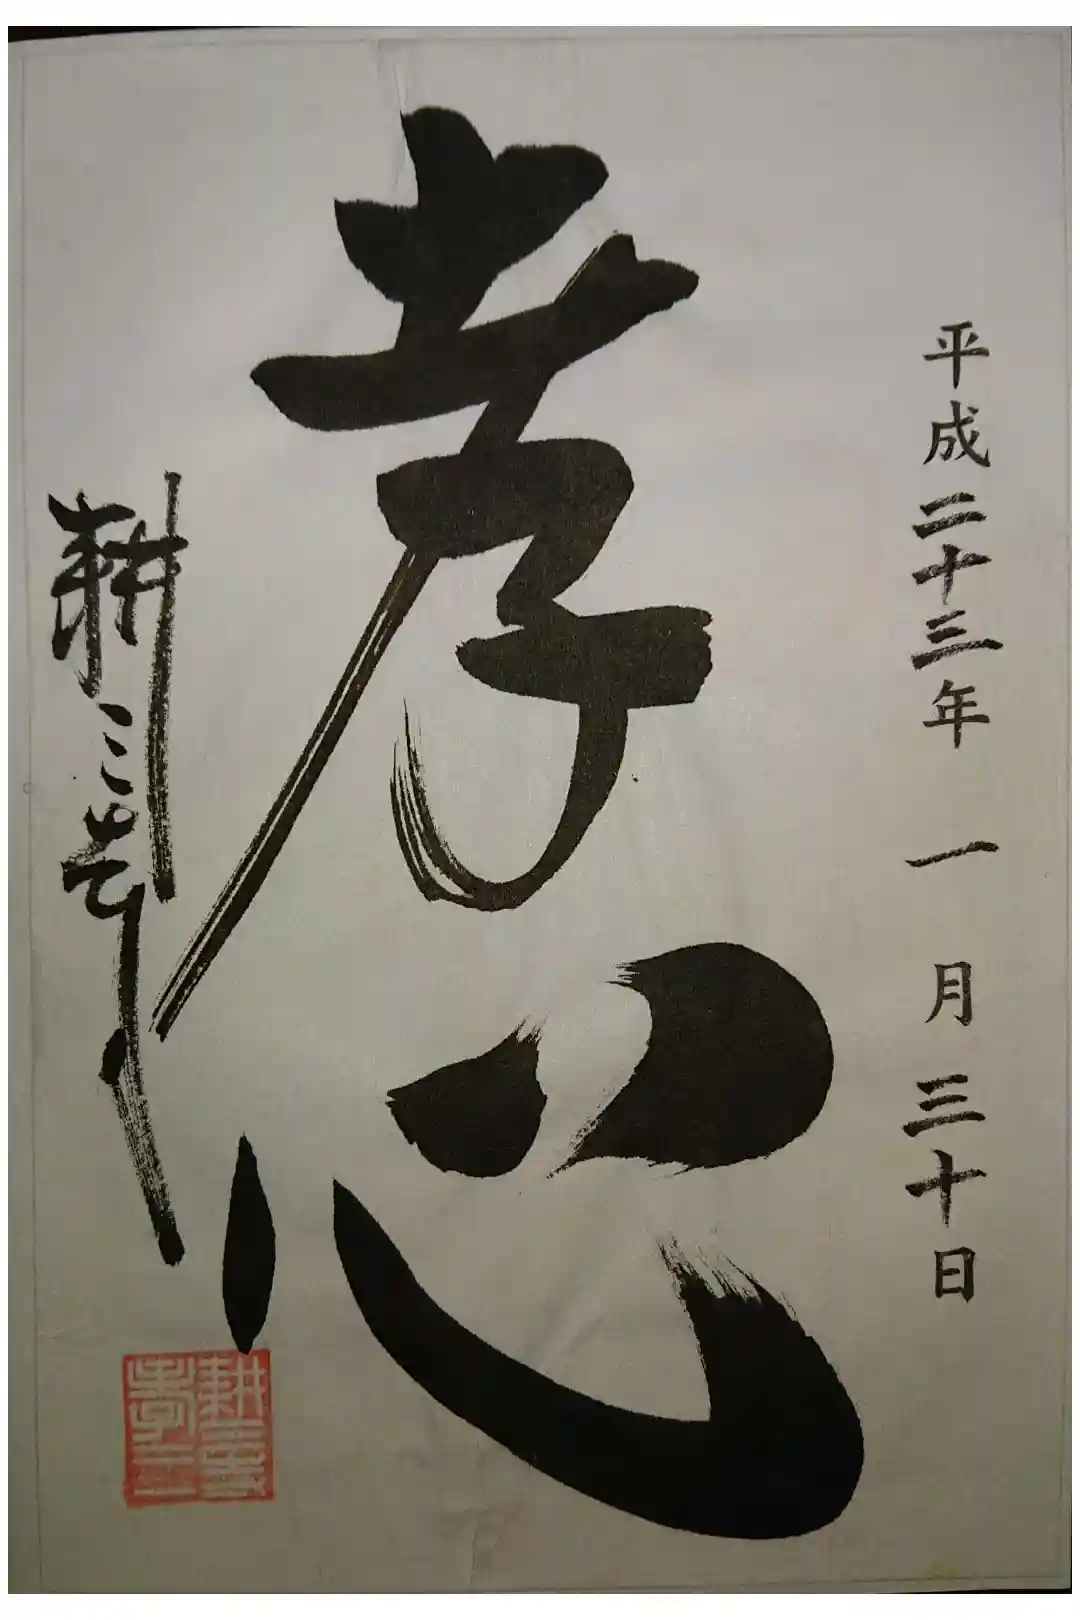 平成二十三年 一月三十日
孝心
耕三寺